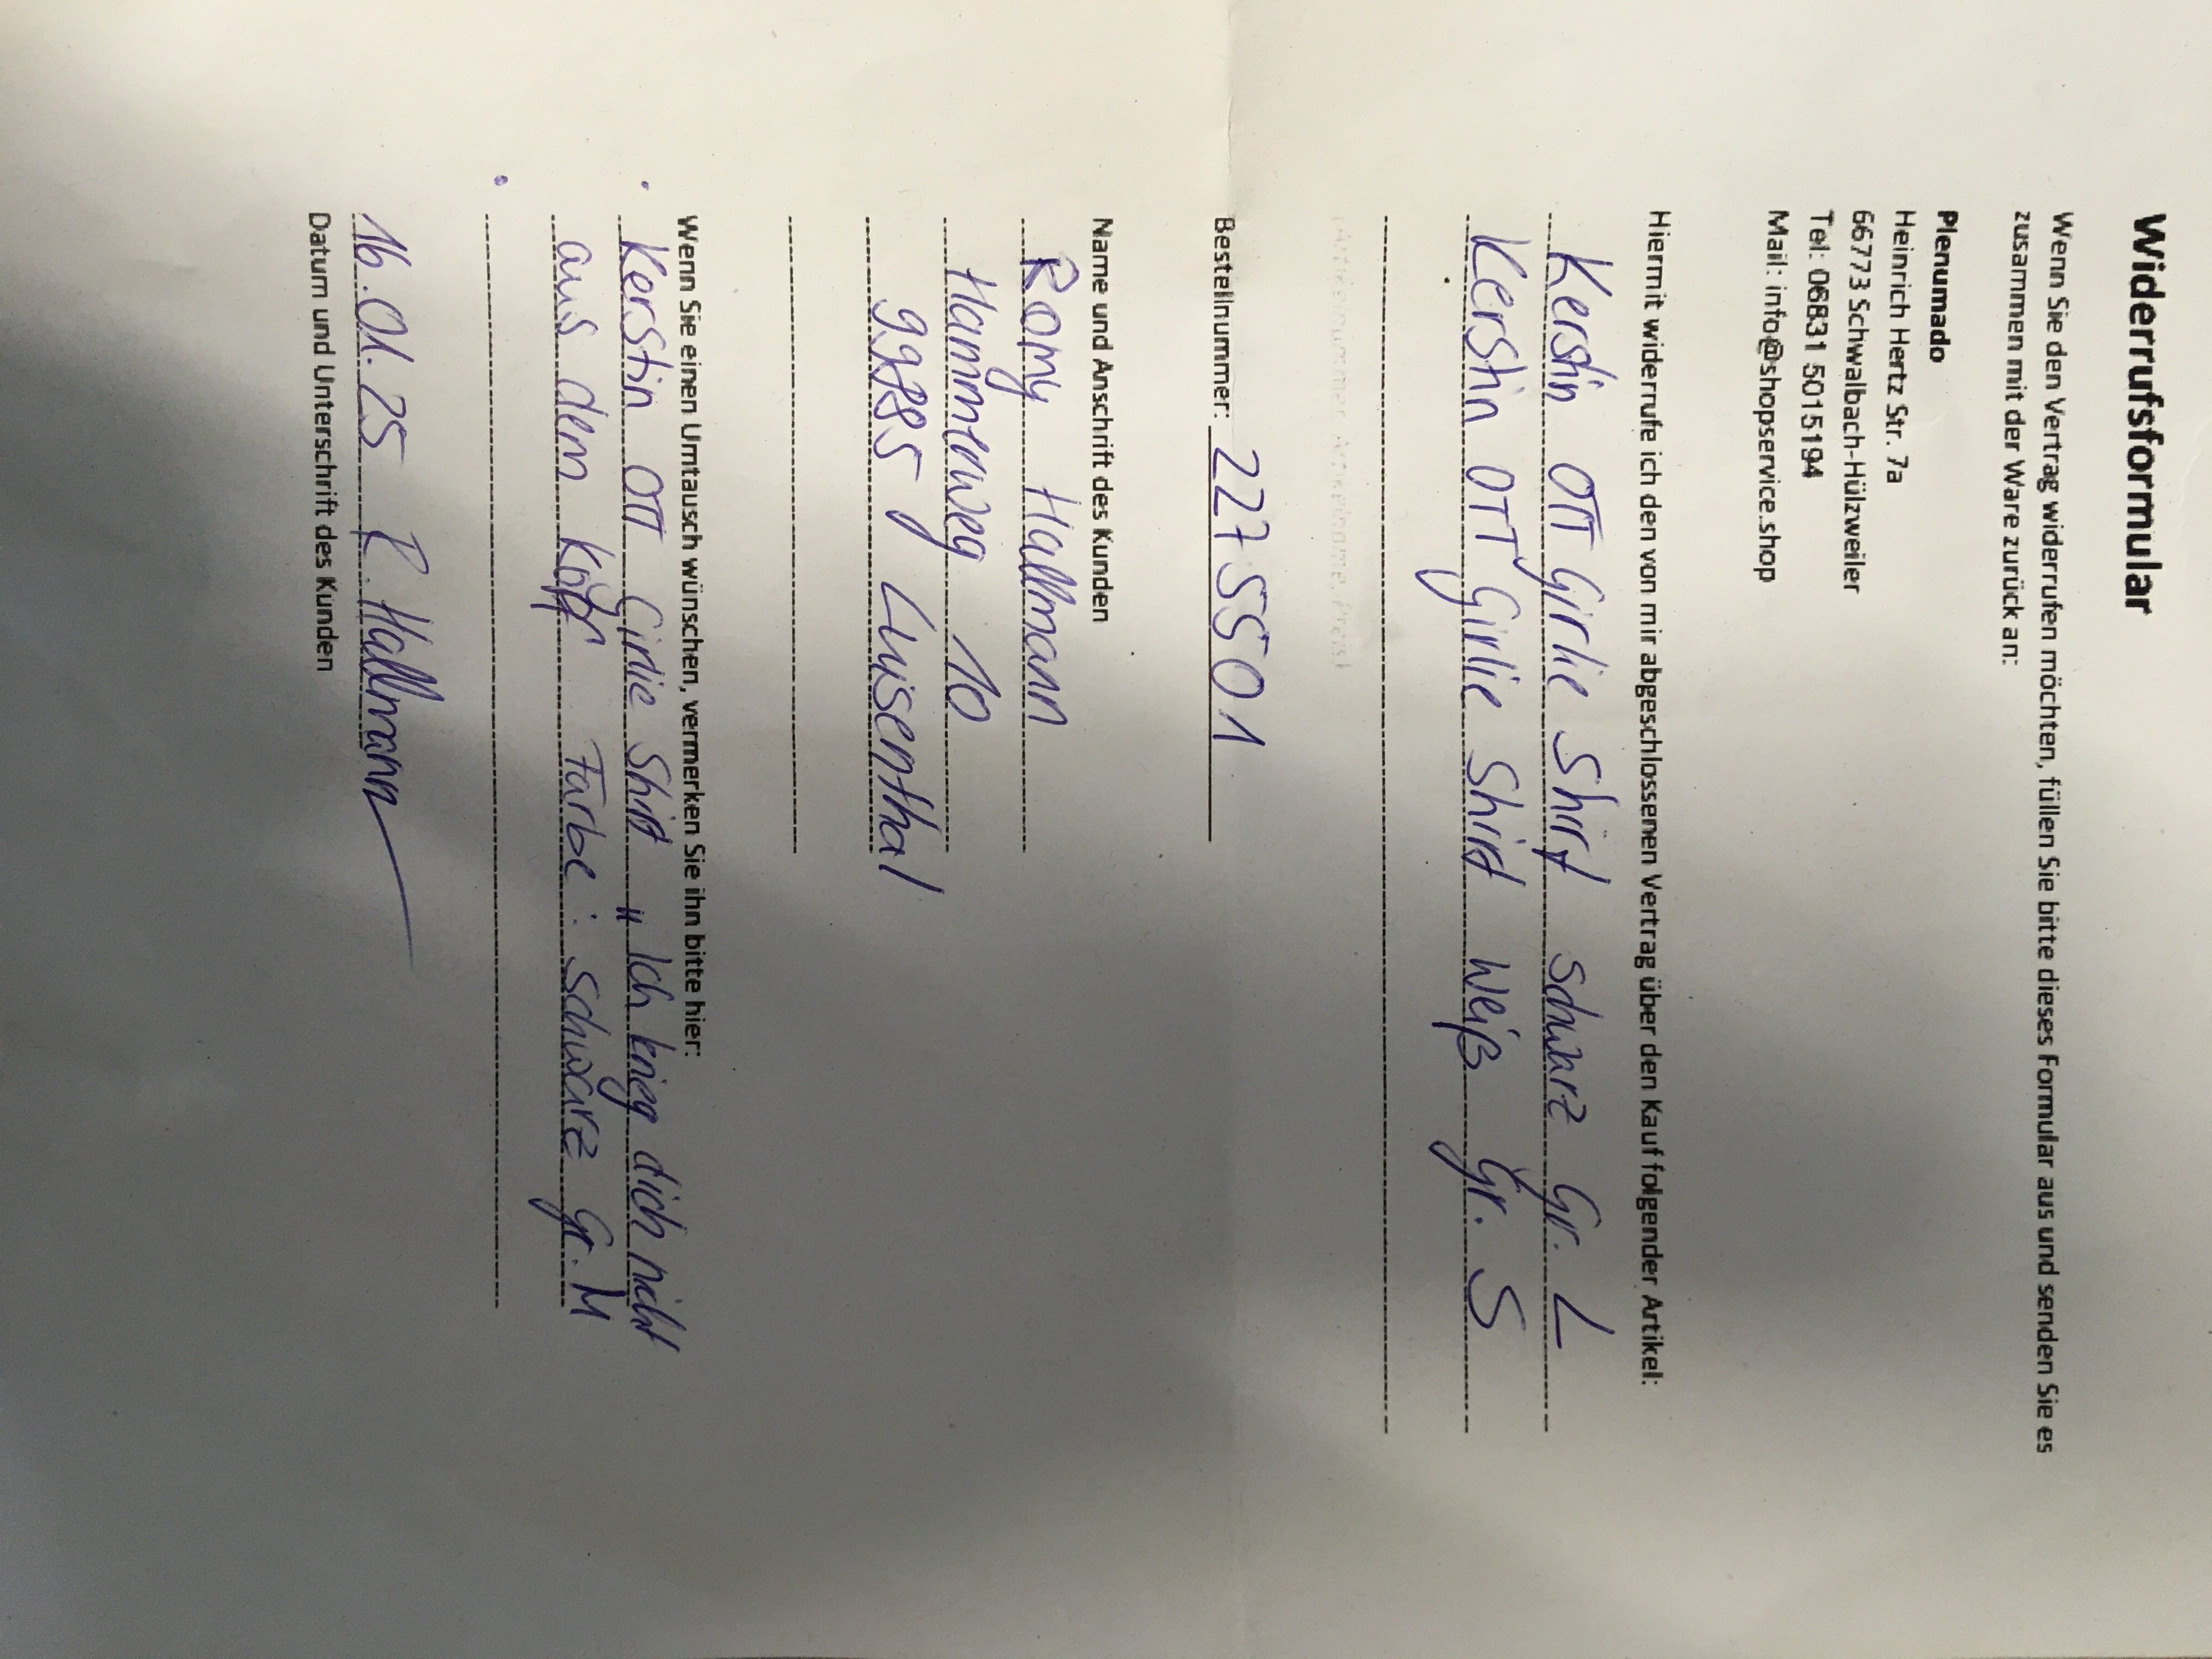 Widerrufsformular
Wenn Sie den Vertrag widerrufen möchten, füllen Sie bitte dieses Formular aus und senden Sie es
zusammmen mit der Ware zurück an:
Plenumado
Heinrich Hertz Str. 7a
66773 Schwalbach-Hülzweiler
Tel: 06831 5015194
Mail: info@shopservice.shop
Hiermit widerrufe ich den von mir abgeschlossenen Vertrag über den Kauf folgender Artikel:
Kerstin OTT Girlie Shirt schwarz Gr. L
Kerstin OTT Girlie Shirt weiß Gr. S
(Artikelnummer, Artikelname, Preis)
Bestellnummer: 2275501
Name und Anschrift des Kunden
Romy Hallmann
Hammerweg 10
99885 Luisenthal
Wenn Sie einen Umtausch wünschen, vermerken Sie ihn bitte hier:
Kerstin OTT Girlie Shirt "Ich krieg dich nicht
aus dem Kopf Farbe: schwarz Gr. M
16.01.25 R. Hallmann
Datum und Unterschrift des Kunden